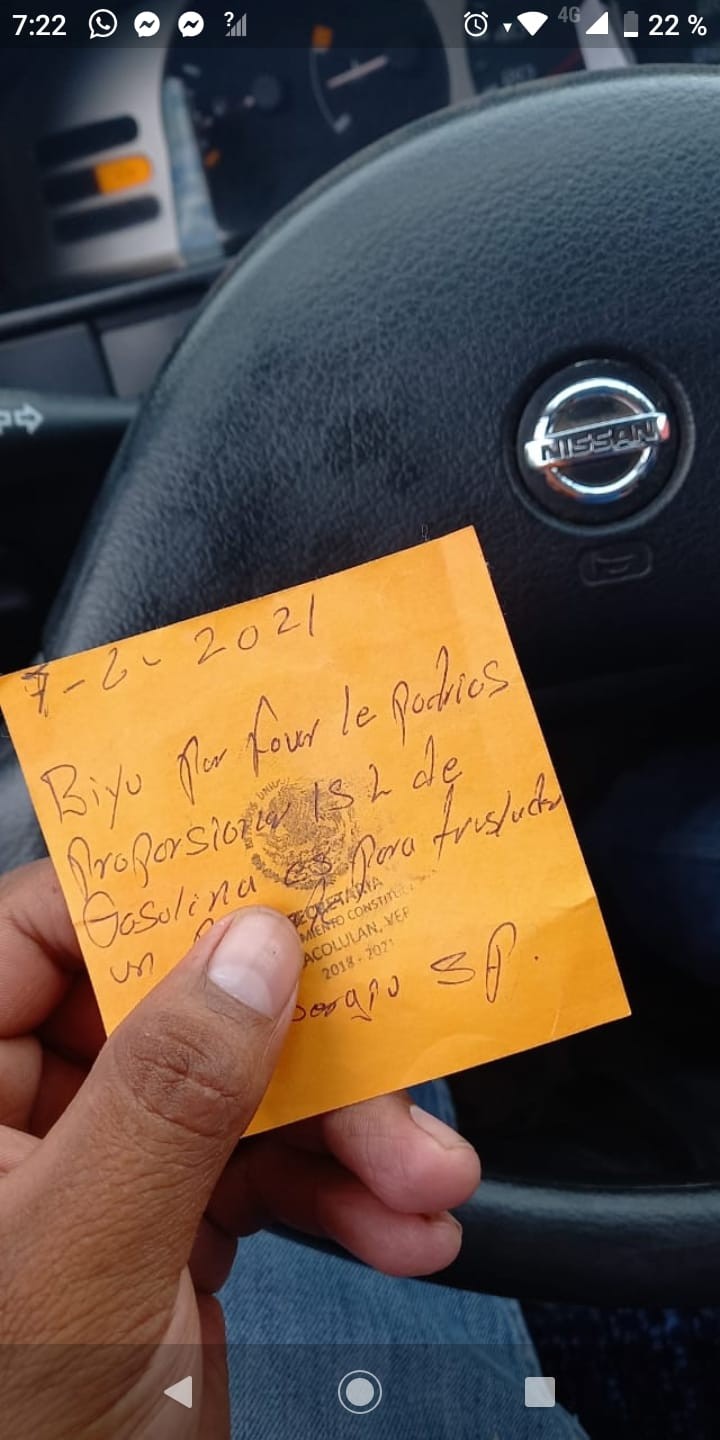 7:22
4G
22 %
NISSAN
7-6-2021
Biyo por favor le podrias
proporsionar 15 L de
Gasolina es para trasladar
un
SECRETARIA
MIENTO CONSTITUC
ACOLULAN, VER
2018 - 2021
Sergio SP.